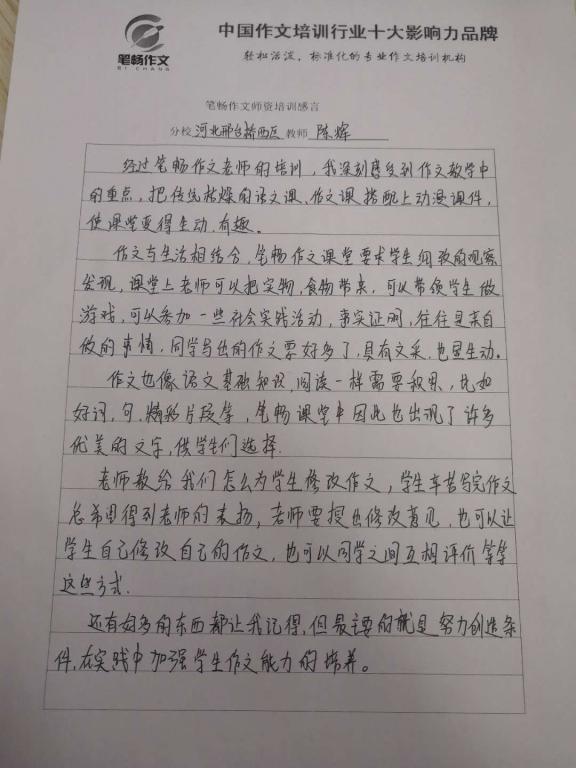 中国作文培训行业十大影响力品牌
笔畅作文
BI CHANG
轻松活泼，标准化的专业作文培训机构
笔畅作文师资培训感言
分校 河北邢台桥西区 教师 陈辉
经过笔畅作文老师的培训，我深刻感受到作文教学中
的重点，把传统枯燥的语文课、作文课搭配上动漫课件，
使课堂变得生动、有趣。
作文与生活相结合，笔畅作文课堂要求学生细致的观察
发现，课堂上老师可以把实物，食物带来，可以带领学生做
游戏，可以参加一些社会实践活动，事实证明，往往是亲自
做的事情，同学写出的作文要好多了，具有文采，也更生动。
作文也像语文基础知识，阅读一样需要积累，比如
好词，句，精彩片段等，笔畅课堂中因此也出现了许多
优美的文字，供学生们选择.
老师教给我们怎么为学生修改作文，学生辛苦写完作文
总希望得到老师的表扬，老师要提出修改意见，也可以让
学生自己修改自己的作文，也可以同学之间互相评价等等
这些方式.
还有好多的东西都让我记得，但最主要的就是努力创造条
件，在实践中加强学生作文能力的培养。